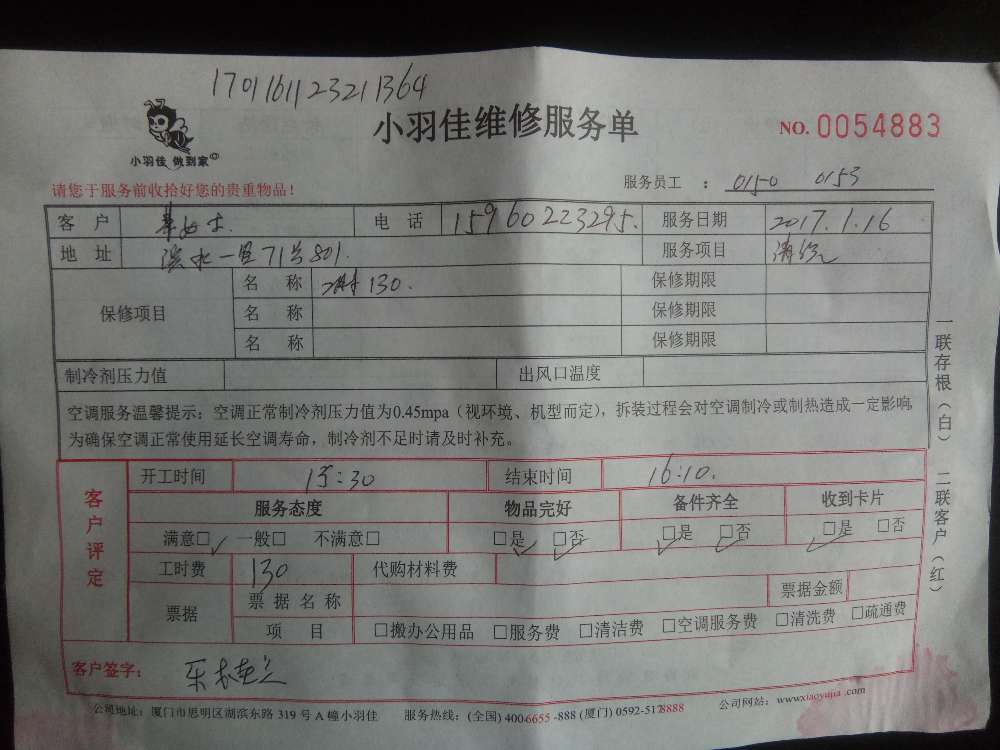 1701161123211364
小羽佳 做到家
小羽佳维修服务单
NO. 0054883
请您于服务前收拾好您的贵重物品！
服务员工 ： 0150 0153
客 户 电 话 15960223295. 服务日期 2017.1.16
地 址 一里71号801. 服务项目 清洗
保修项目 名 称 130. 保修期限
名 称 保修期限
名 称 保修期限
制冷剂压力值 出风口温度
空调服务温馨提示：空调正常制冷剂压力值为0.45mpa（视环境、机型而定），拆装过程会对空调制冷或制热造成一定影响，
为确保空调正常使用延长空调寿命，制冷剂不足时请及时补充。
客户评定
开工时间 15:30 结束时间 16:10.
服务态度 物品完好 备件齐全 收到卡片
满意□ 一般□ 不满意□ □是 □否 □是 □否 □是 □否
工时费 130 代购材料费
票据 票据名称 票据金额
项 目 □搬办公用品 □服务费 □清洁费 □空调服务费 □清洗费 □疏通费
客户签字：
公司地址：厦门市思明区湖滨东路 319 号 A 幢小羽佳 服务热线：(全国) 400-6655-888 (厦门) 0592-5178888 公司网站：www.xiaoyujia.com
一联存根（白） 二联客户（红）